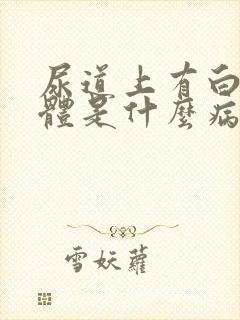 尿道上有白
體是什麼病
雪妖蘿